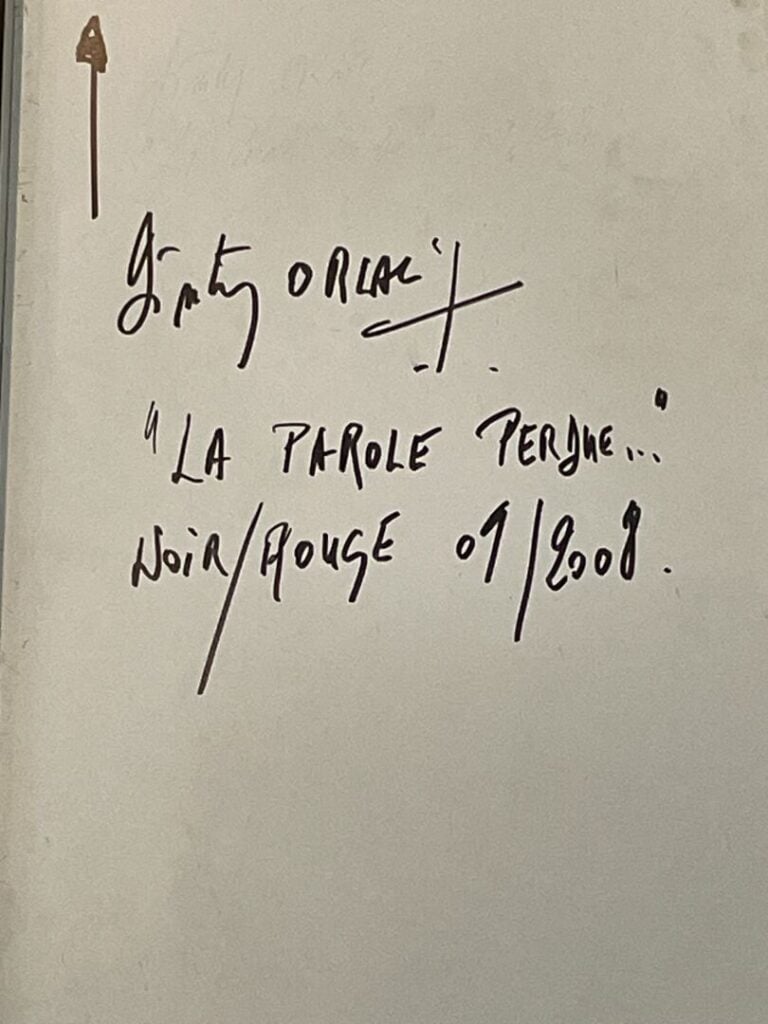 Dimitry ORLAC
"LA PAROLE PERDUE..."
NOIR/ROUGE 09/2008.